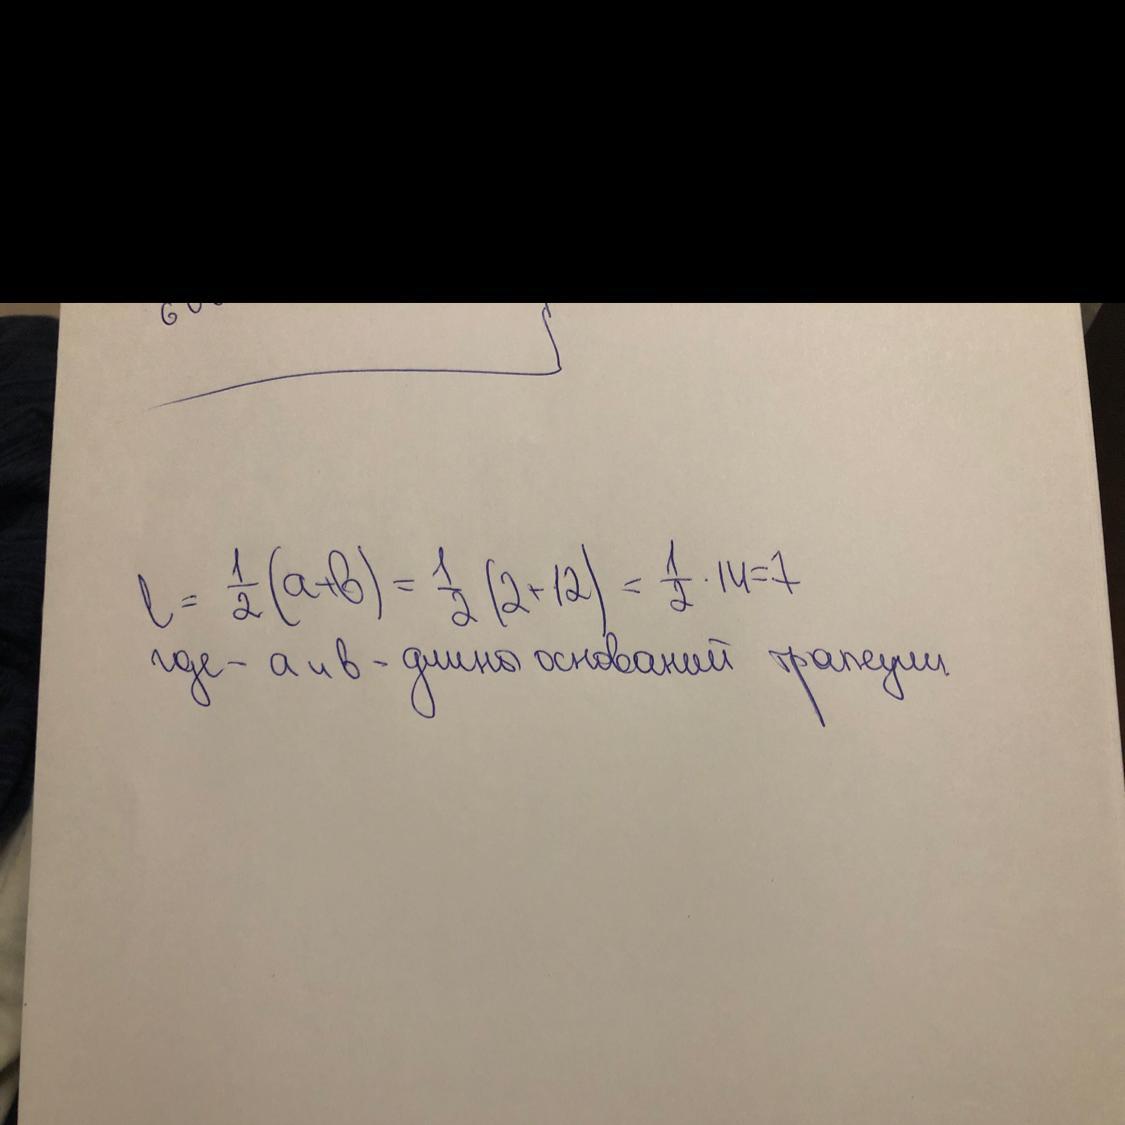 l = 1/2 (a+b) = 1/2 (2+12) = 1/2 · 14 = 7
где - a и b - длины оснований трапеции